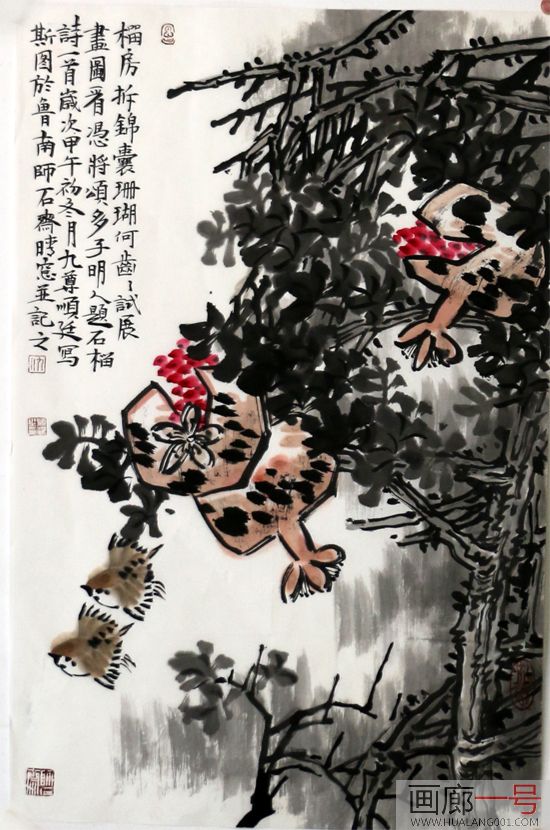 榴房拆錦囊珊瑚何齒〻試展
畫圖看憑將頌多子明人題石榴
詩一首歲次甲午初冬月九尊順廷寫
斯图於魯南師石齋晴窓並記之
画廊一号
WWW.HUALANG001.COM